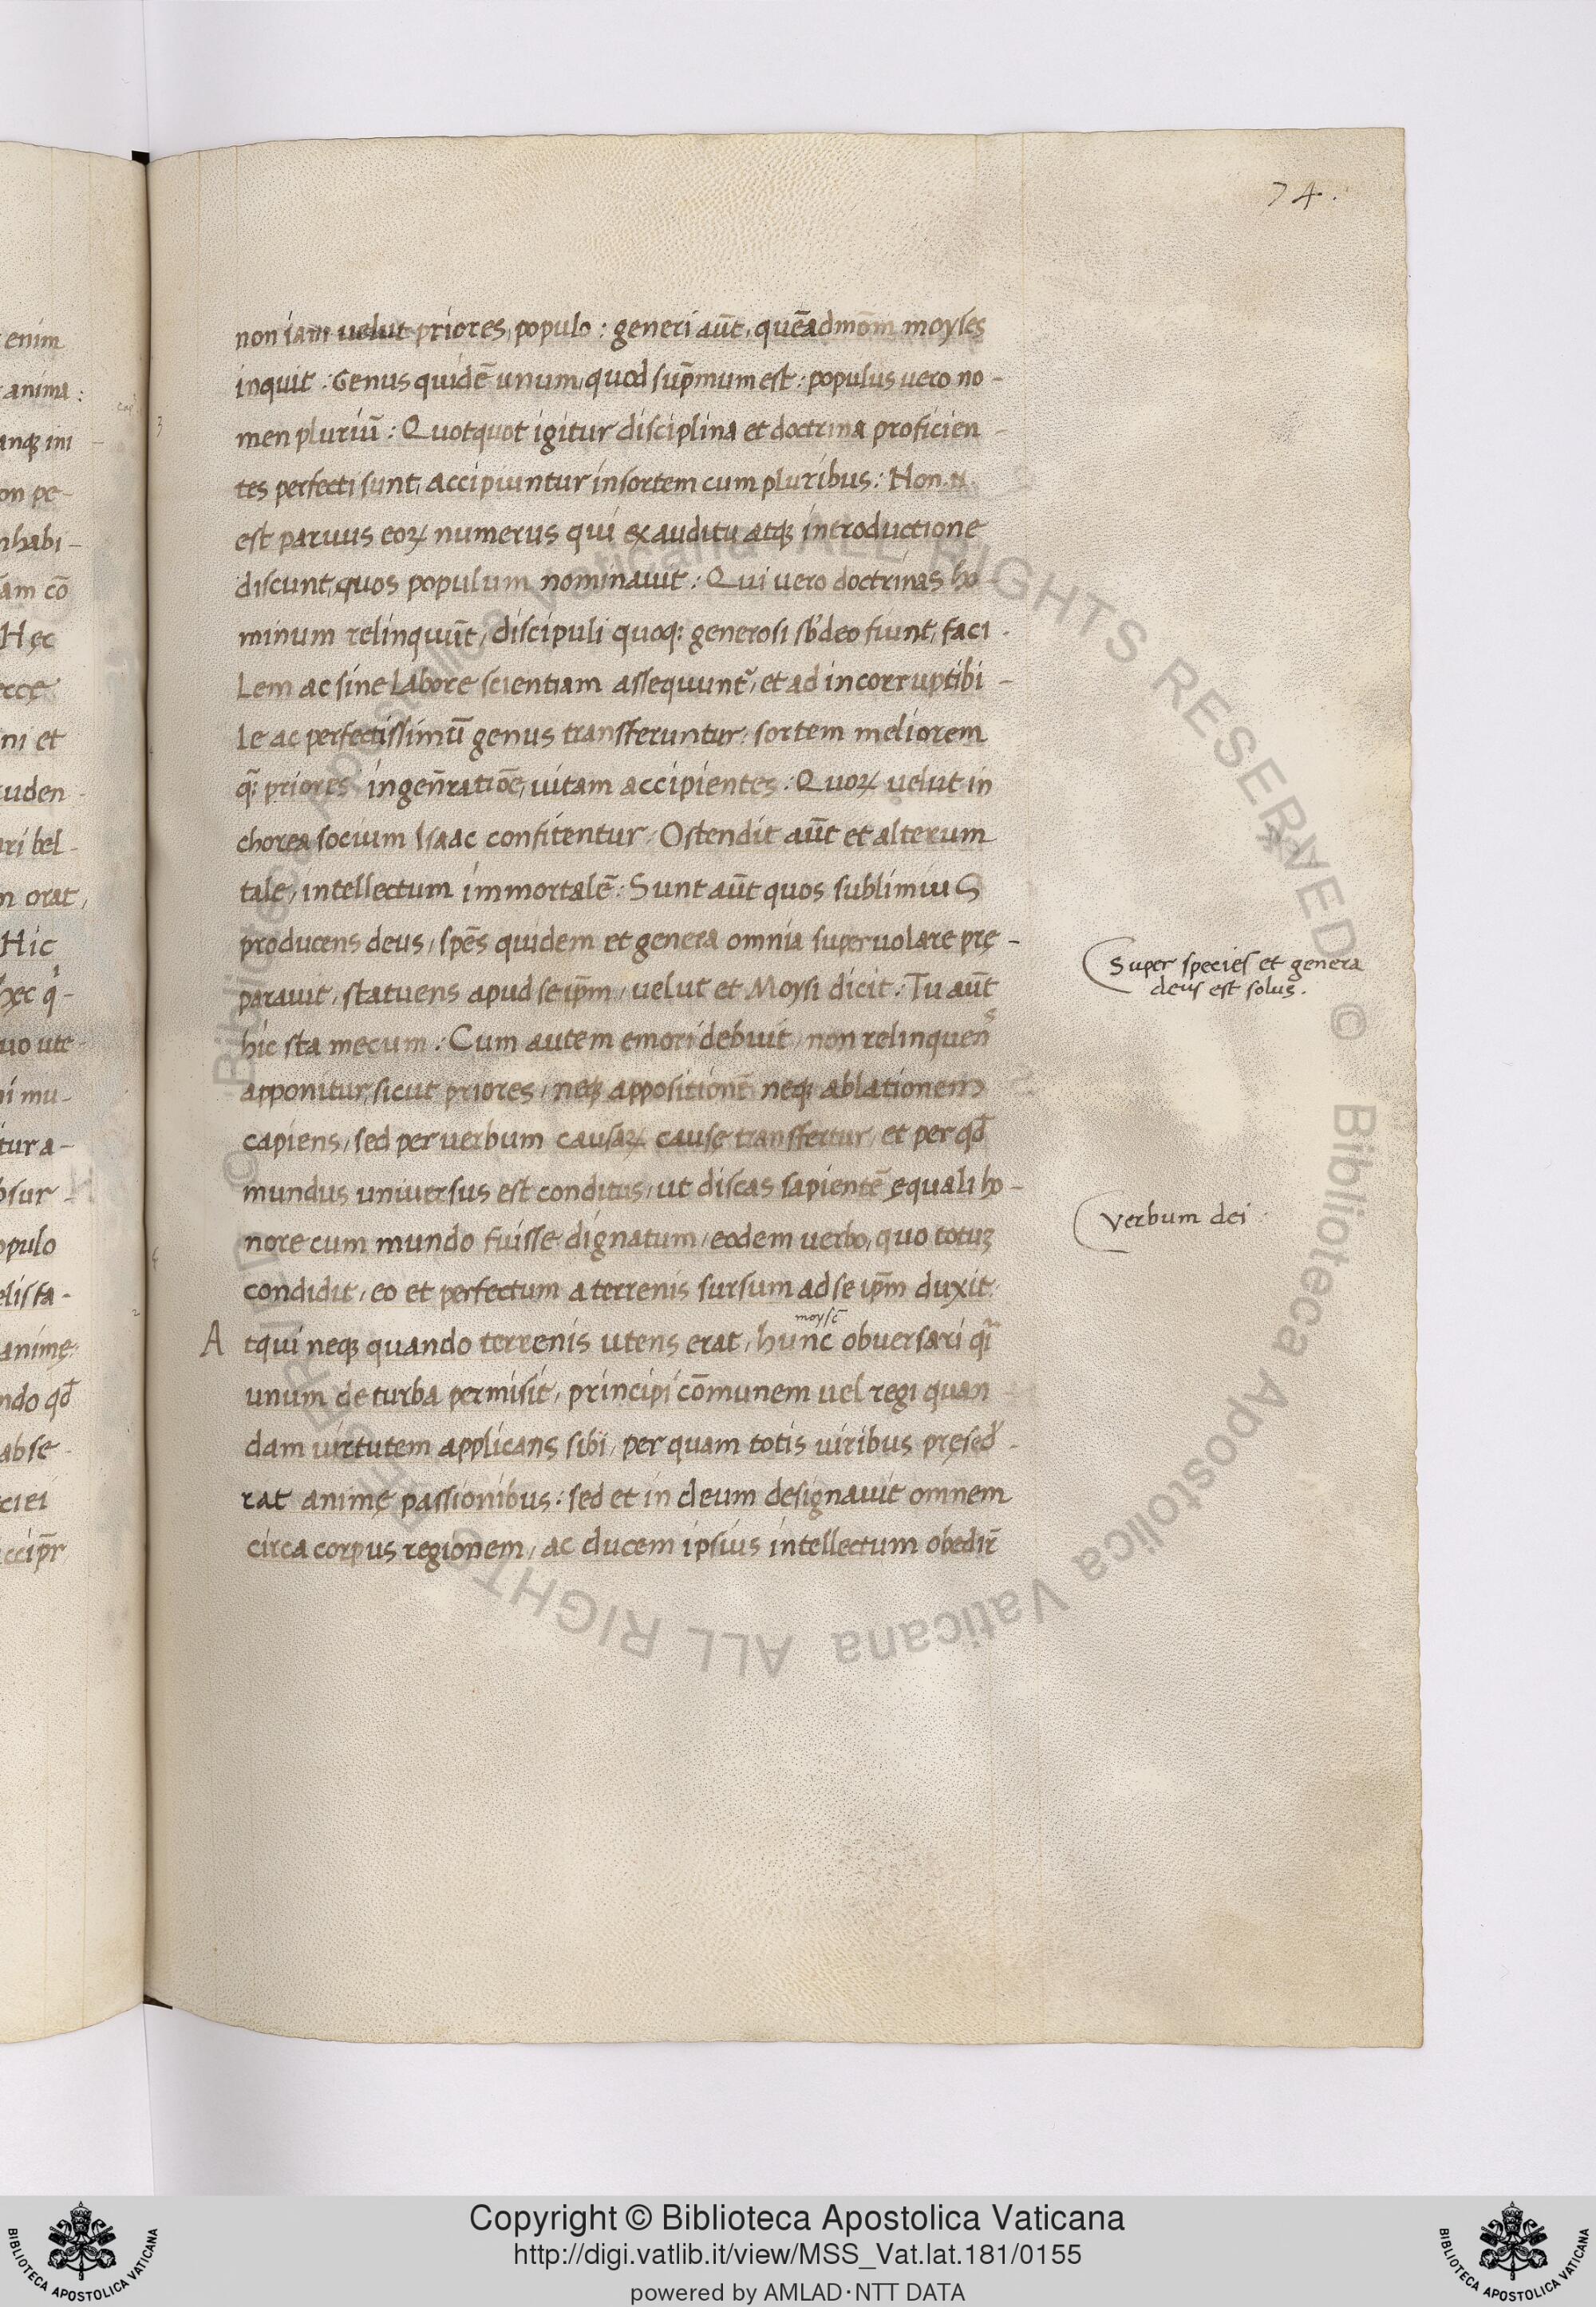 74.
non iam velut priores, populo : generi aūt, quēadmōm moyses
inquit : Genus quidē unum, quod sup̄mum est : populus vero no-
men pluriū : Quotquot igitur disciplina et doctrina proficien-
tes perfecti sunt, accipiuntur in sortem cum pluribus : Non .n.
est parvus eoꝝ numerus qui ex auditu atqꝫ introductione
discunt, quos populum nominavit : Qui vero doctrinas ho-
minum relinquūt, discipuli quoqꝫ generosi sb' deo fiunt, faci-
lem ac sine labore scientiam assequunt᷑, et ad incorruptibi-
le ac perfectissimū genus transferuntur, sortem meliorem
q̄ꝫ priores in geñratiōe, vitam accipientes : Quoꝝ velut in
chorea socium Isaac confitentur, Ostendit aūt et alterum
tale, intellectum immortalē : Sunt aūt quos sublimius
producens deus, sp̄es quidem et genera omnia supervolare prę-
paravit, statuens apud se ip̄m, velut et Moysi dicit : Tu aūt
hic sta mecum : Cum autem emori debuit, non relinquens
apponitur, sicut priores, neqꝫ appositionē neqꝫ ablationem
capiens, sed per verbum causaꝝ causę transfertur, et per qd̄
mundus universus est conditus, ut discas sapientē ęquali ho-
nore cum mundo fuisse dignatum, eodem verbo, quo totuꝫ
condidit, eo et perfectum a terrenis sursum ad se ip̄m duxit.
moysē
Atqui neqꝫ quando terrenis utens erat, hunc obversari q̄i
unum de turba permisit, principi cōmunem vel regi quan
dam virtutem applicans sibi, per quam totis viribus pręsed'-
rat animę passionibus : sed et in deum designavit omnem
circa corpus regionem, ac ducem ipsius intellectum obedir̄
Super species et genera
deus est solus.
Verbum dei
enim
anima :
anqꝫ ini-
on pe-
nhabi-
am cō
Hęc
ni et
uden-
ri bel-
orat,
Hic
hęc q'-
uo ute-
ni mu-
tur a-
sur-
opulo
elista-
animę
ndo qd̄
ab se-
ciei
ccip̄r
© Biblioteca Apostolica Vaticana ALL RIGHTS RESERVED © Biblioteca Apostolica Vaticana ALL RIGHTS RESERVED
Copyright © Biblioteca Apostolica Vaticana
http://digi.vatlib.it/view/MSS_Vat.lat.181/0155
powered by AMLAD·NTT DATA
BIBLIOTECA APOSTOLICA VATICANA
BIBLIOTECA APOSTOLICA VATICANA